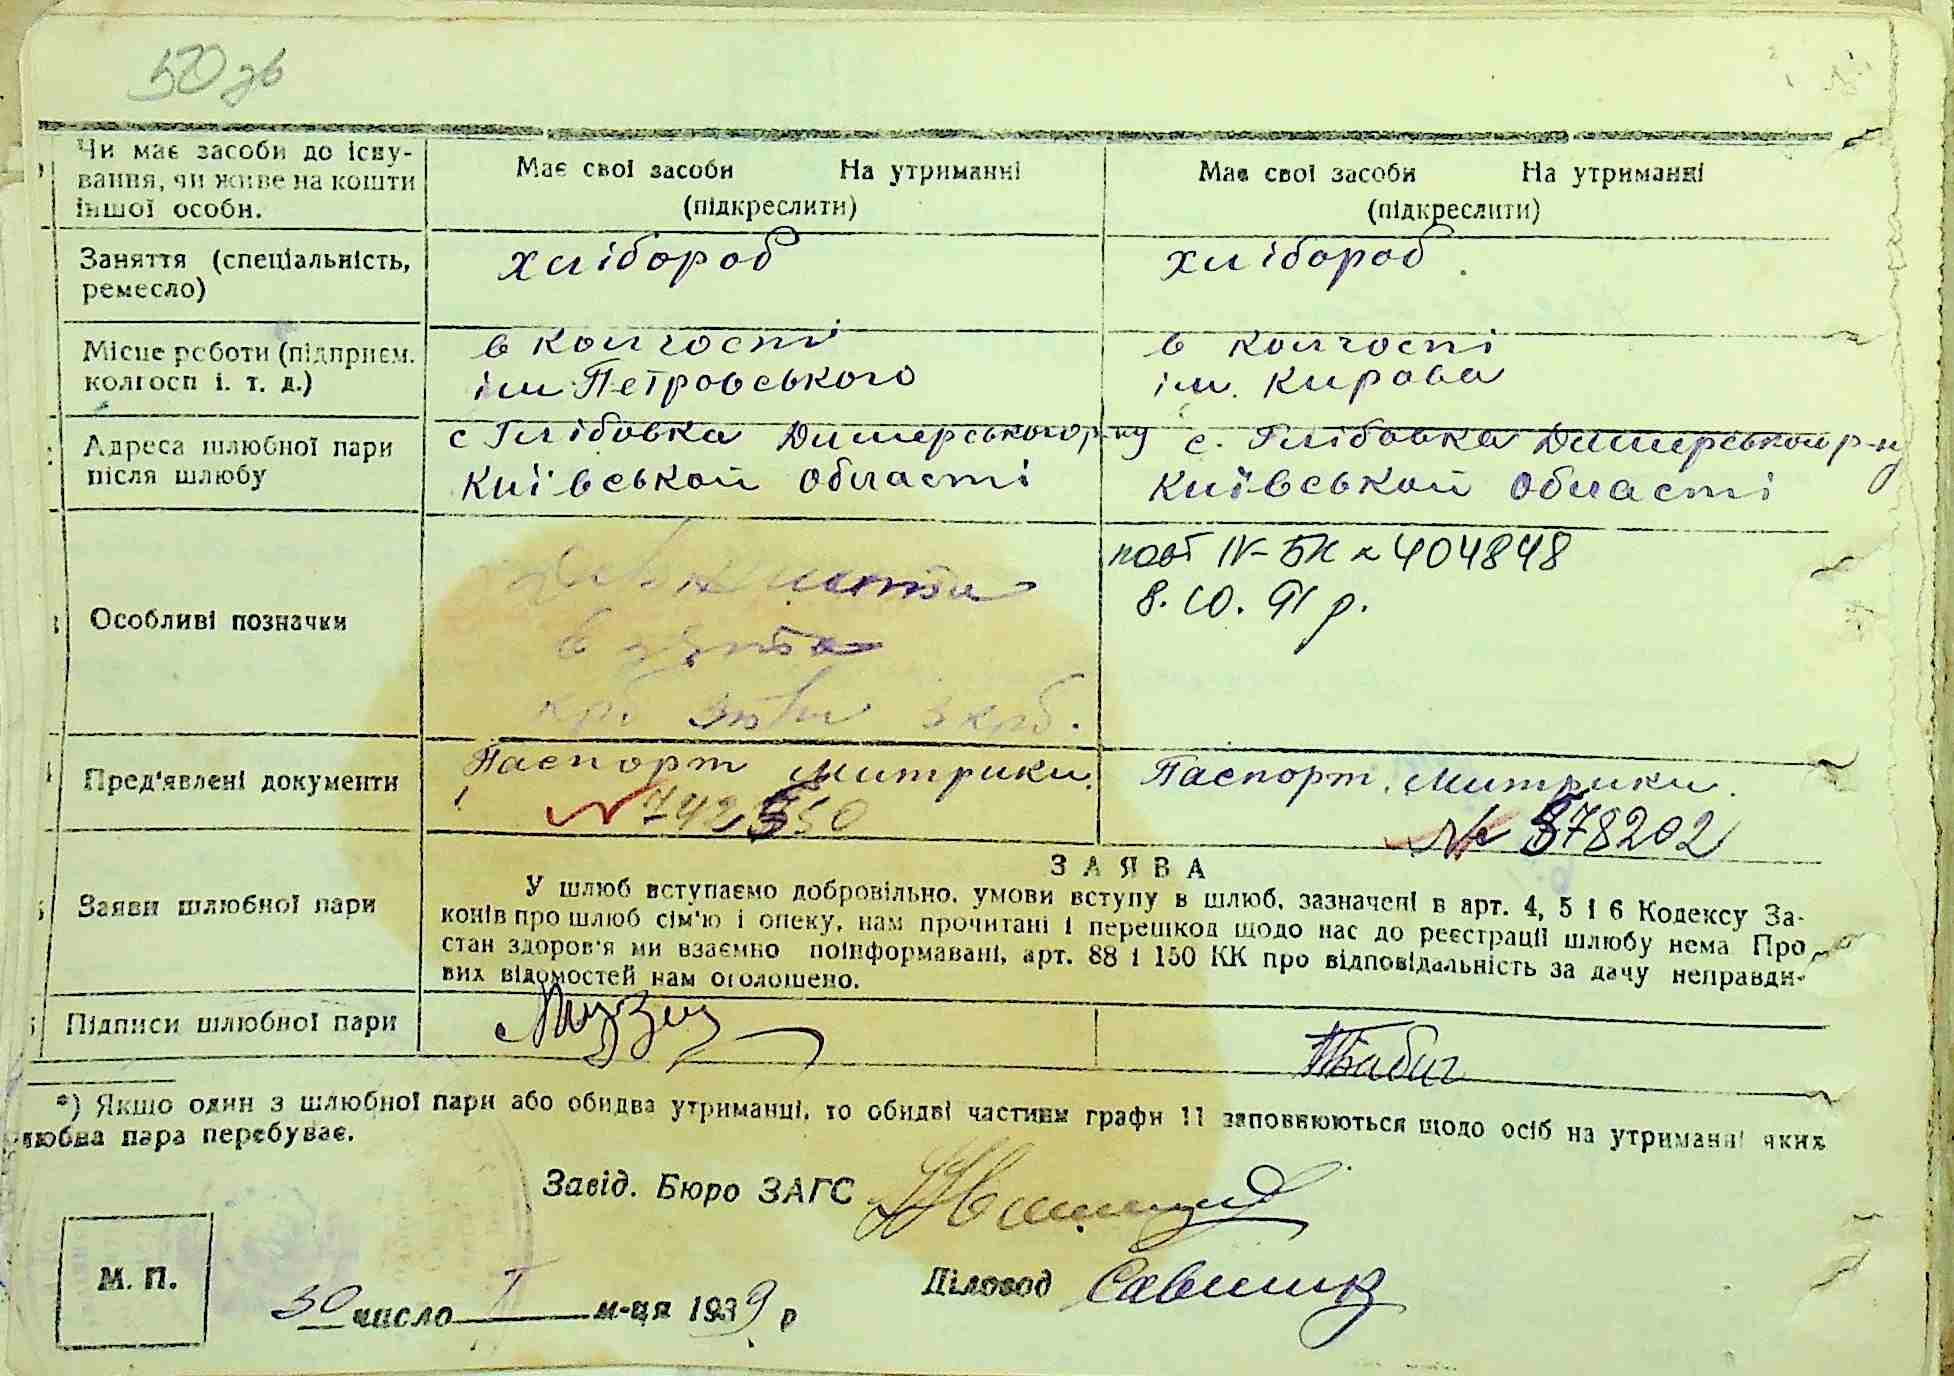 50 зв
Чи має засоби до існу-
вання, чи живе на кошти
іншої особи.
Має свої засоби На утриманні
(підкреслити)
Має свої засоби На утриманні
(підкреслити)
Заняття (спеціальність,
ремесло)
хлібороб
хлібороб
Місце роботи (підприєм.
колгосп і. т. д.)
в колгоспі
ім Петровського
в колгоспі
ім. Кирова
Адреса шлюбної пари
після шлюбу
с Глібовка Димерського р-ну
Київської області
с. Глібовка Димерськом р-ну
Київської області
Особливі позначки
в
крб 3 крб.
повт ІV-БК № 404848
8.10.91 р.
Пред'явлені документи
Паспорт митрики.
№ 742550
Паспорт, митрики.
№ 578202
Заяви шлюбної пари
ЗАЯВА
У шлюб вступаємо добровільно, умови вступу в шлюб, зазначені в арт. 4, 5 і 6 Кодексу За-
конів про шлюб сім'ю і опеку, нам прочитані і перешкод щодо нас до реєстрації шлюбу нема Про
стан здоров'я ми взаємно поінформавані, арт. 88 і 150 КК про відповідальність за дачу неправди-
вих відомостей нам оголошено.
Підписи шлюбної пари
*) Якщо один з шлюбної пари або обидва утриманці, то обидві частини графи 11 заповнюються щодо осіб на утриманні яких
любна пара перебуває.
Завід. Бюро ЗАГС
М. П.
30 число І м-ця 1939 р
Діловод Савеник